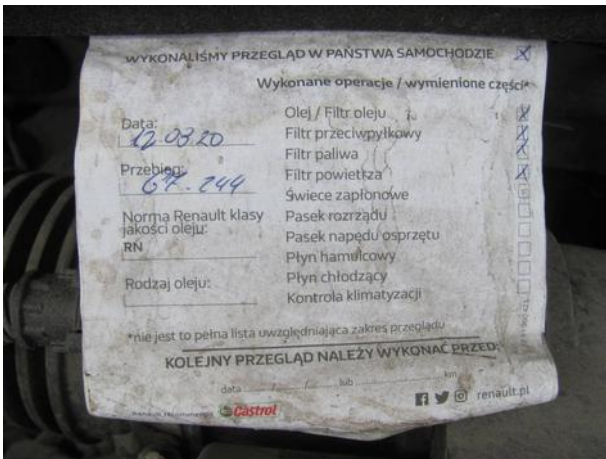 WYKONALIŚMY PRZEGLĄD W PAŃSTWA SAMOCHODZIE X
Wykonane operacje / wymienione części*
Data:
12 08 20
Przebieg:
67.244
Norma Renault klasy
jakości oleju:
RN
Rodzaj oleju:
Olej / Filtr oleju X
Filtr przeciwpyłkowy X
Filtr paliwa X
Filtr powietrza X
Świece zapłonowe
Pasek rozrządu
Pasek napędu osprzętu
Płyn hamulcowy
Płyn chłodzący
Kontrola klimatyzacji
*nie jest to pełna lista uwzględniająca zakres przeglądu
KOLEJNY PRZEGLĄD NALEŻY WYKONAĆ PRZED:
data / / lub km
Castrol
renault.pl